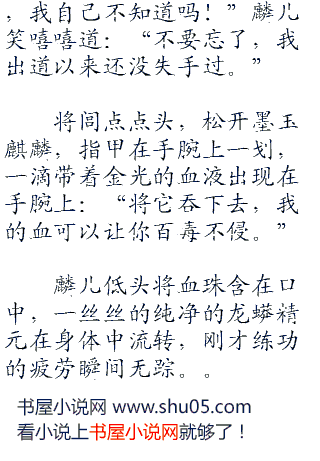 ，我自己不知道吗！”麟儿
笑嘻嘻道：“不要忘了，我
出道以来还没失手过。”
将闾点点头，松开墨玉
麒麟，指甲在手腕上一划，
一滴带着金光的血液出现在
手腕上：“将它吞下去，我
的血可以让你百毒不侵。”
麟儿低头将血珠含在口
中，一丝丝的纯净的龙蟒精
元在身体中流转，刚才练功
的疲劳瞬间无踪。。
书屋小说网 www.shu05.com
看小说上书屋小说网就够了！